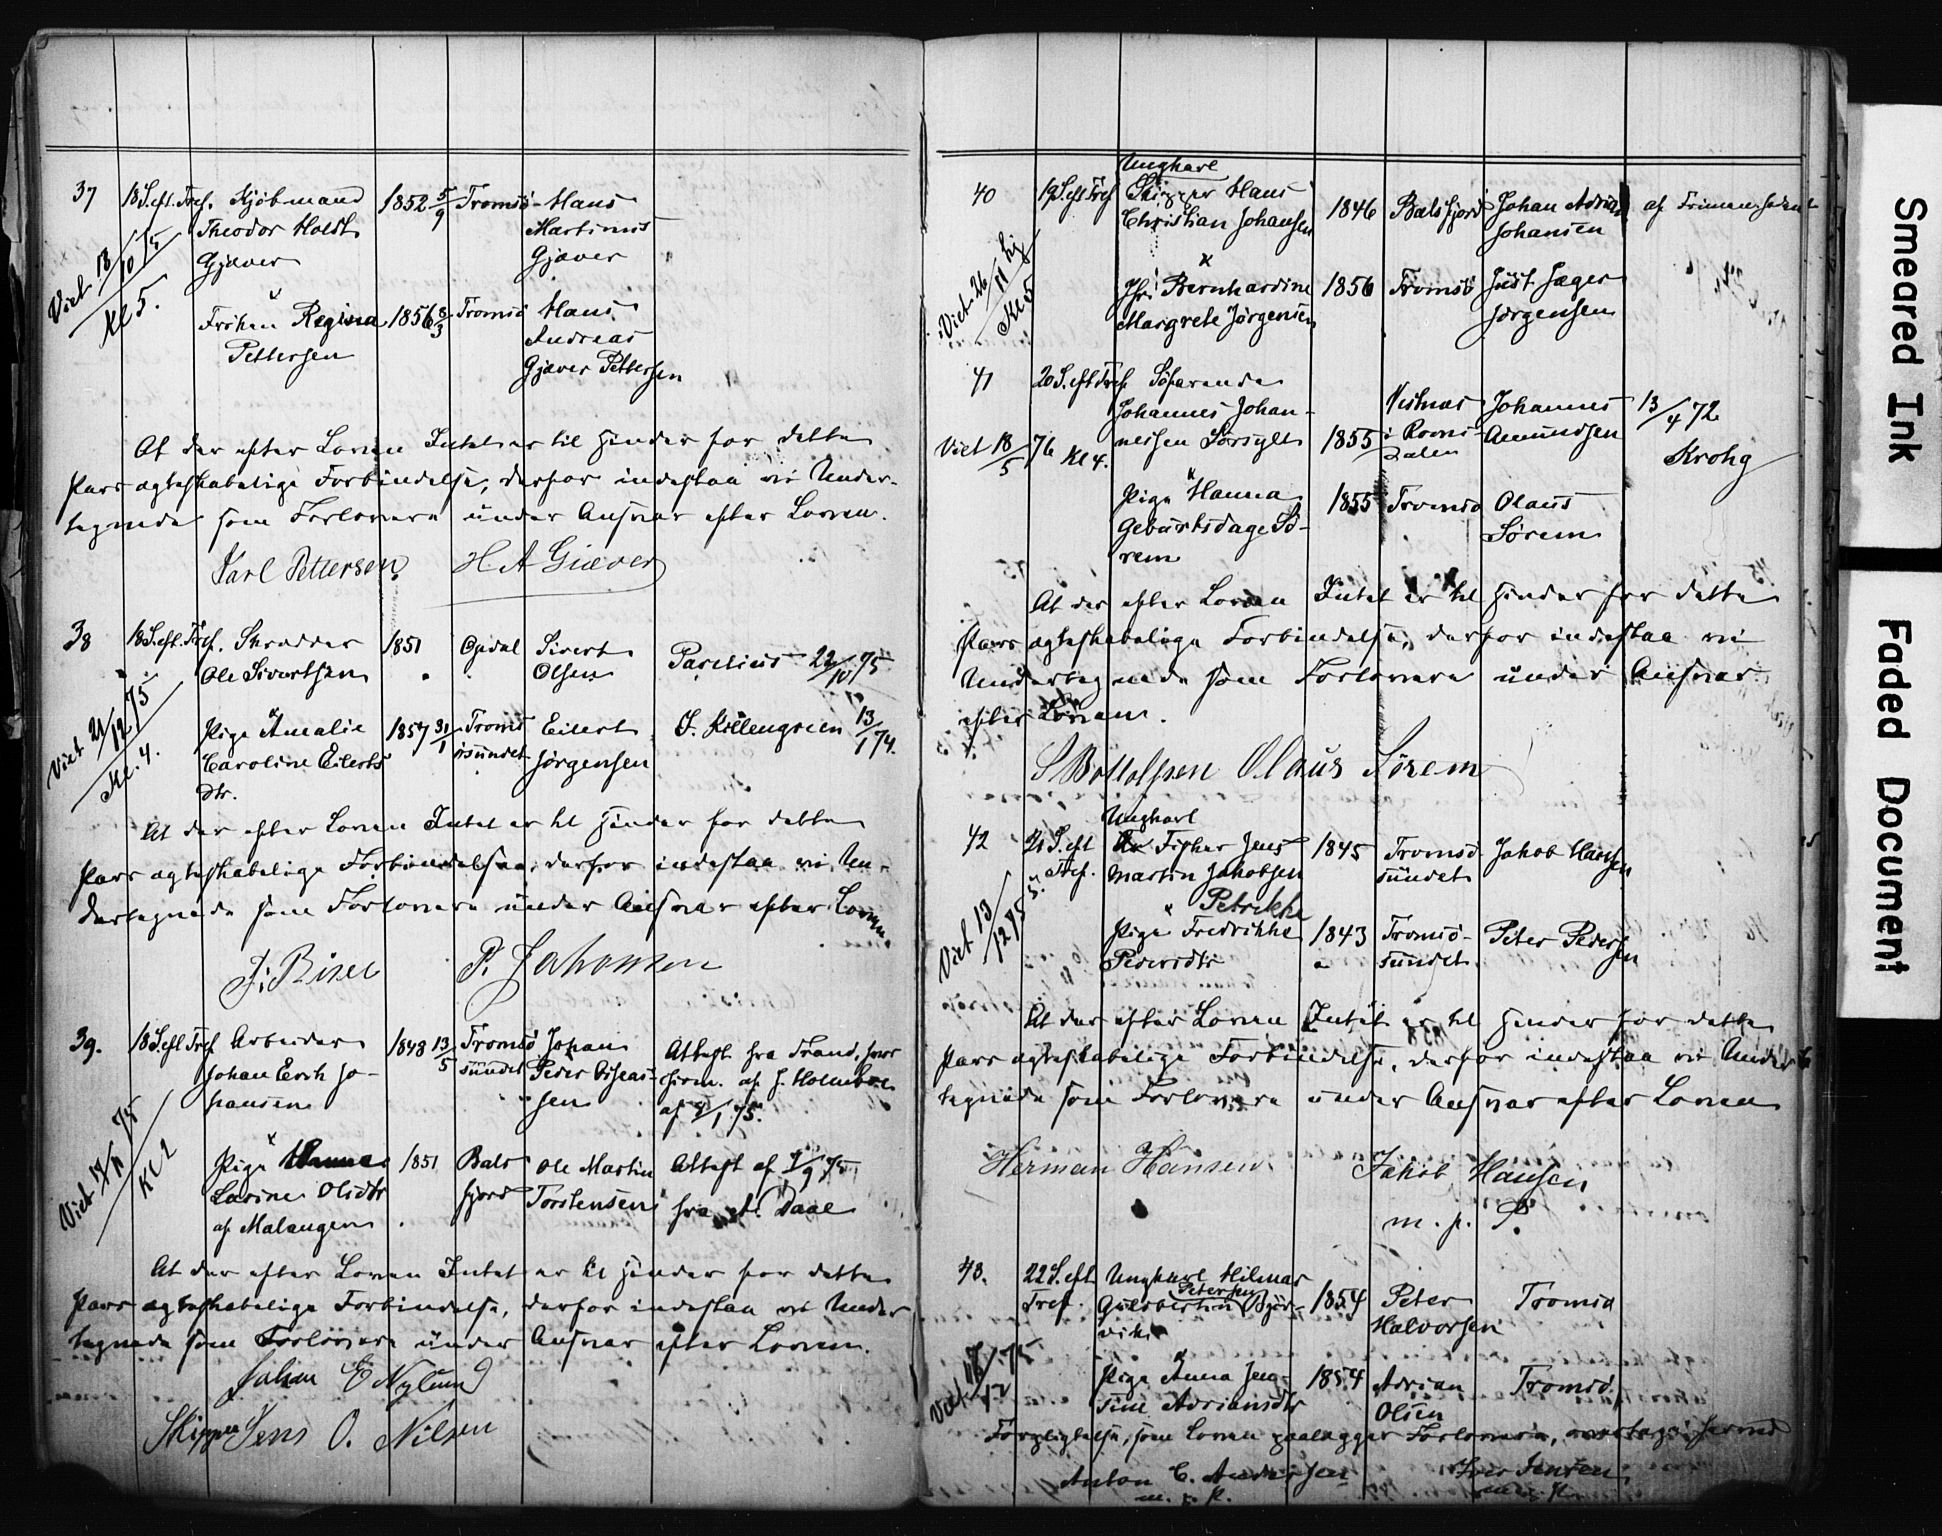 37 18 S. eft. Tref. Kjöbmand 1852 5/9 Tromsö Hans
Theodor Holst Martinus
Gjæver Gjæver
Viet 13/10 75 Kl 5.
Fröken Regina 1856 8/3 Tromsö Hans
Pettersen Andreas
Gjæver Pettersen
At der efter Loven Intet er til Hinder for dette
Pars ægteskabelige Forbindelse, derfor indestaa vi Under-
tegnede som Forlovere under Ansvar efter Loven.
Karl Pettersen. H A Giæver
38 18 S. eft. Tref. Skrædder 1851 Opdal Sivert Parelius 22/10 75
Ole Sivertsen Olsen
Viet 21/12 75 Kl. 4.
Pige Amalie 1857 31/1 Troms Eilert J. Killengreen 13/1 74.
Caroline Eilerts ösundet Jörgensen
dtr.
At der efter Loven Intet er til Hinder for dette
Pars ægteskabelige Forbindelse, derfor indestaa vi Un-
dertegnede som Forlovere under Ansvar efter Loven
P. Johansen
39. 18 S. eft Tref Arbeider 1848 13/5 Tromsö Johan Attest fra Trand.
Johan Erik Jo- sundet Peder af J. Holmboe
hansen sen af 8/1 75.
Viet 17/11 75 Kl 2
Pige Hanna 1851 Bals Ole Martin Attest af 7/9 75
Larine Olsdtr fjord Torstensen fra A. Daae
af Malangen
At der efter Loven Intet er til Hinder for dette
Pars ægteskabelige Forbindelse, derfor indestaa vi Under
tegnede som Forlovere under Ansvar efter Loven.
Johan E Nylund
Skipper Jens O. Nilsen
Ungkarl
40 19 S. eft Tref Skipper Hans 1846 Balsfjord Johan Adrian af
Christian Johansen Johansen
Viet 26/11 Kl 5
Bernhardine 1856 Tromsö Just Jæger
Margrete Jörgensen Jörgensen
41 20 S. eft Tref. Söfarende
Johannes Johan- Vestnæs Johannes 13/4 72
nessen Sörsylt 1855 i Roms- Amundsen Krohg
dalen
Viet 18/5 76 Kl 4.
Pige Hanna 1855 Tromsö Olaus
Geburtsdage Sö- Sörem
rem
At der efter Loven Intet er til Hinder for dette
Pars ægteskabelige Forbindelse, derfor indestaa vi
Undertegnede som Forlovere under Ansvar
efter Loven.
Olaus Sörem
Ungkarl
42 21 S. eft Fisker Jens 1845 Tromsö Jakob Hansen
Tref. Martin Jakobsen sundet
Viet 13/12 75
Petrikke
Pige Fredrikke 1843 Tromsö- Peter Pedersen
Pedersdtr sundet
At der efter Loven Intet er til Hinder for dette
Pars ægteskabelige Forbindelse, derfor indestaa vi Under
tegnede som Forlovere under Ansvar efter Loven
Herman Hansen Jakob Hansen
m. p. P.
43. 22 S. eft Ungkarl Hilmar
Petersen
Tref. Gulbertin Björ- 1854 Peter Tromsö
vik Halvorsen
Viet 17/12 75
Pige Anna Jen- 1854 Adrian Tromsö
sine Adriansdtr Olsen
Forpligtelse, som Loven paalægger Forlovere, overtages herved
Anton C. Andersen Iver Jensen
m. p. P.
Smeared Ink
Faded Document